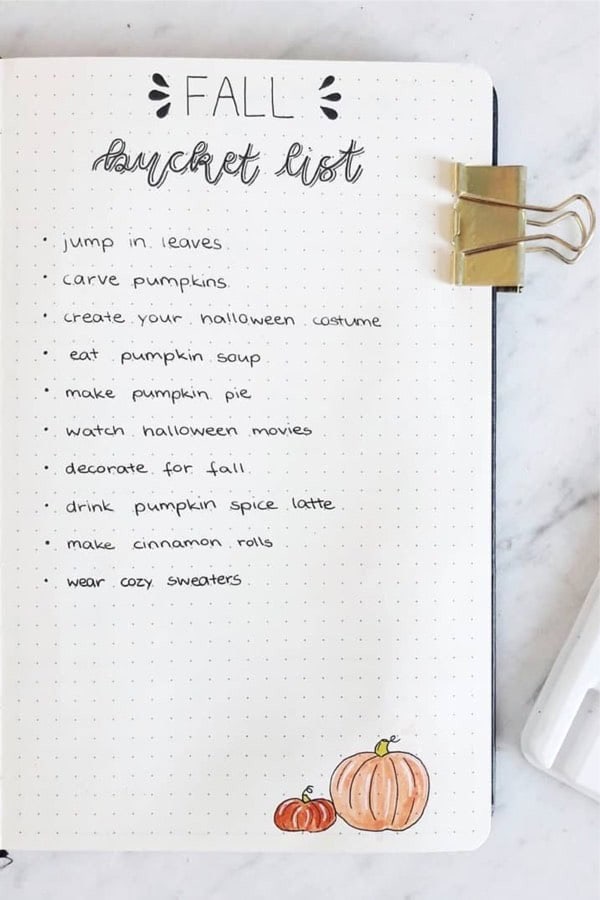 FALL
bucket list
• jump in leaves
• carve pumpkins
• create your halloween costume
• eat pumpkin soup
• make pumpkin pie
• watch halloween movies
• decorate for fall
• drink pumpkin spice latte
• make cinnamon rolls
• wear cozy sweaters